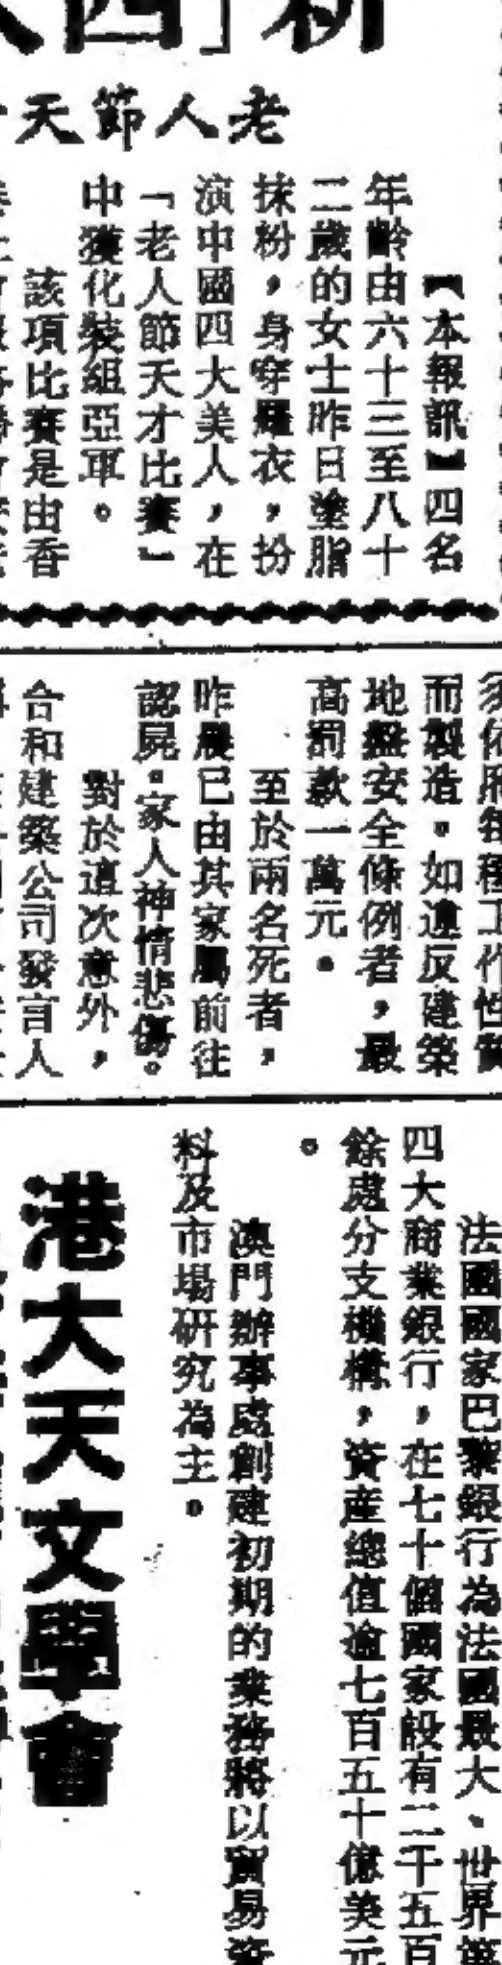 新「四大
老人節天
【本報訊】四名
年齡由六十三至八十
二歲的女士昨日塗脂
抹粉，身穿羅衣，扮
演中國四大美人，在
「老人節天才比賽」
中獲化裝組亞軍。
該項比賽是由香
而製造。如違反建築
地盤安全條例者，最
高罰款一萬元。
至於兩名死者，
昨晨已由其家屬前往
認屍。家人神情悲傷。
對於這次意外，
合和建築公司發言人
法國國家巴黎銀行為法國最大、世界第
四大商業銀行，在七十個國家設有二千五百
餘處分支機構，資產總值逾七百五十億美元
。
澳門辦事處創建初期的業務將以貿易資
料及市場研究為主。
港大天文學會